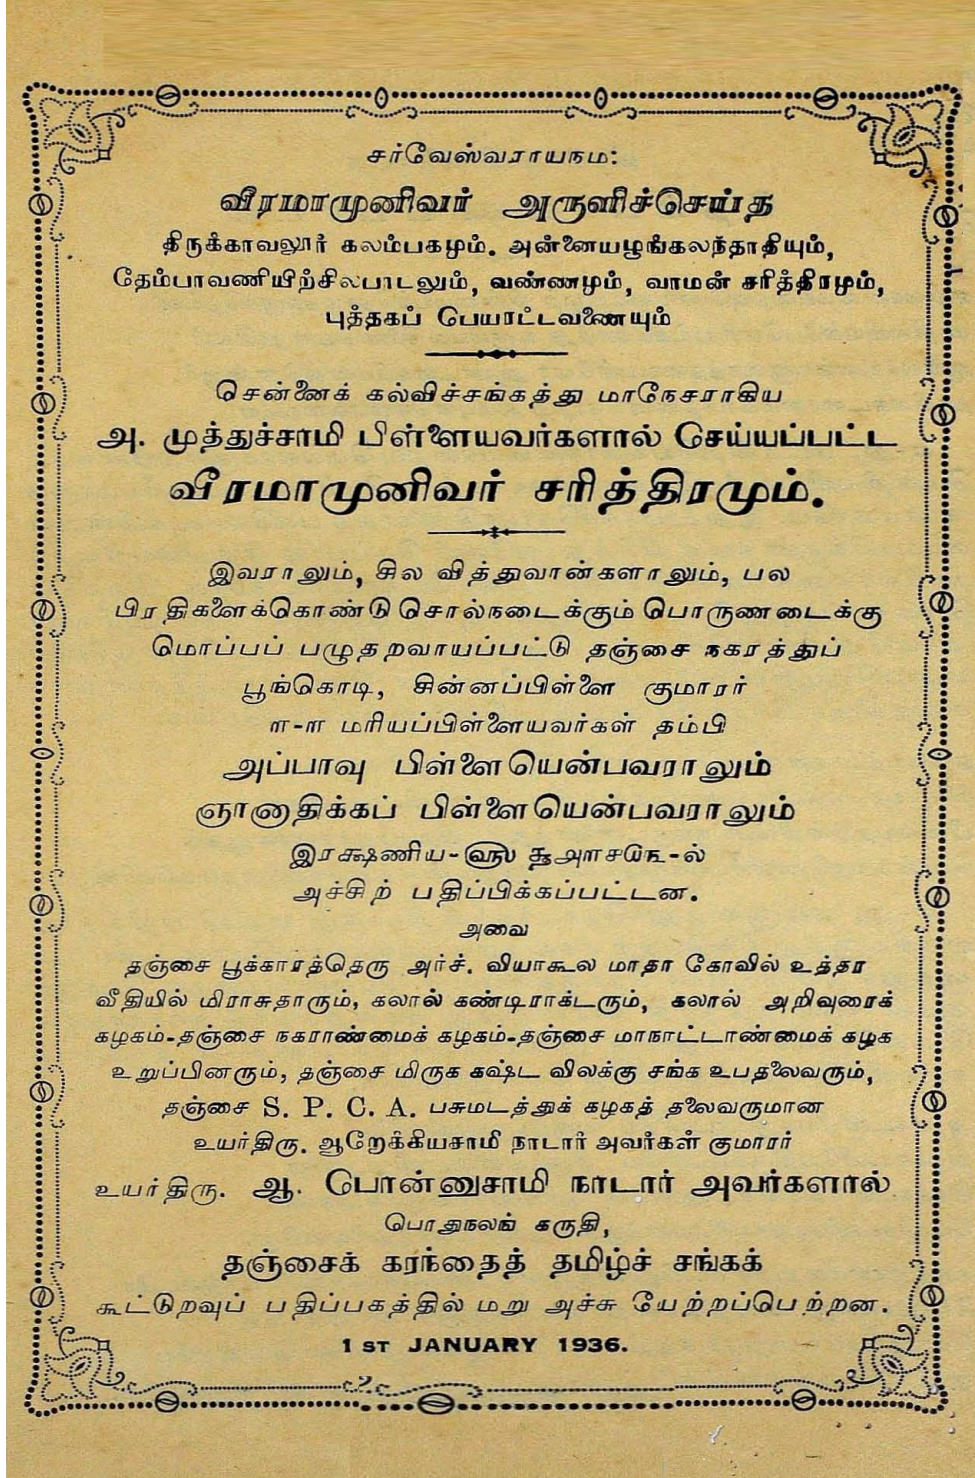 சர்வேஸ்வராயநம:
வீரமாமுனிவர் அருளிச்செய்த
திருக்காவலூர் கலம்பகமும். அன்னையழுங்கலந்தாதியும்,
தேம்பாவணியிற்சிலபாடலும், வண்ணமும், வாமன் சரித்திரமும்,
புத்தகப் பேயாட்டவணையும்
சென்னைக் கல்விச்சங்கத்து மாநேசராகிய
அ. முத்துச்சாமி பிள்ளையவர்களால் செய்யப்பட்ட
வீரமாமுனிவர் சரித்திரமும்.
இவராலும், சில வித்துவான்களாலும், பல
பிரதிகளைக்கொண்டு சொல்நடைக்கும் பொருணடைக்கு
மொப்பப் பழுதறவாயப்பட்டு தஞ்சை நகரத்துப்
பூங்கொடி, சின்னப்பிள்ளை குமாரர்
ள-ள மரியப்பிள்ளையவர்கள் தம்பி
அப்பாவு பிள்ளையென்பவராலும்
ஞானாதிக்கப் பிள்ளையென்பவராலும்
இரக்ஷணிய-௵ ௲௮௱௪௰௩-ல்
அச்சிற் பதிப்பிக்கப்பட்டன.
அவை
தஞ்சை பூக்காரத்தெரு அர்ச். வியாகூல மாதா கோவில் உத்தர
வீதியில் மிராசுதாரும், கலால் கண்டிராக்டரும், கலால் அறிவுரைக்
கழகம்-தஞ்சை நகராண்மைக் கழகம்-தஞ்சை மாநாட்டாண்மைக் கழக
உறுப்பினரும், தஞ்சை மிருக கஷ்ட விலக்கு சங்க உபதலைவரும்,
தஞ்சை S. P. C. A. பசுமடத்துக் கழகத் தலைவருமான
உயர்திரு. ஆரோக்கியசாமி நாடார் அவர்கள் குமாரர்
உயர்திரு. ஆ. பொன்னுசாமி நாடார் அவர்களால்
பொதுநலங் கருதி,
தஞ்சைக் கரந்தைத் தமிழ்ச் சங்கக்
கூட்டுறவுப் பதிப்பகத்தில் மறு அச்சு யேற்றப்பெற்றன.
1 ST JANUARY 1936.